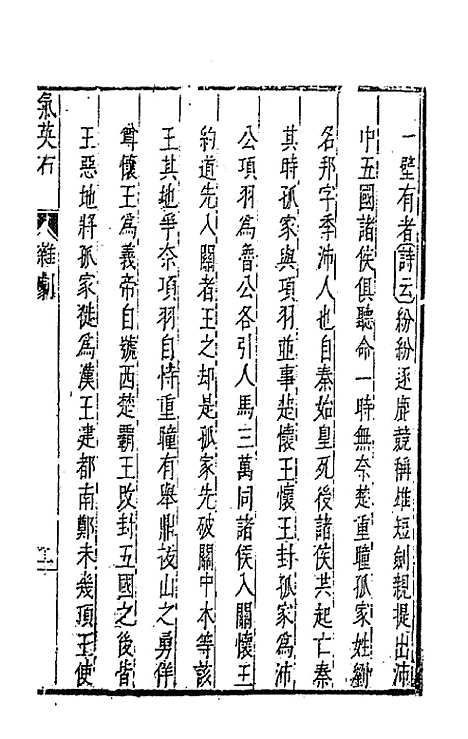 一壁有者詩云紛紛逐鹿競稱雄短劍親提出沛
中五國諸侯俱聽命一時無奈楚重瞳孤家姓劉
名邦字季沛人也自秦始皇死後諸侯共起亡秦
其時孤家與項羽並事楚懷王懷王封孤家爲沛
公項羽爲魯公各引人馬三萬同諸侯入關懷王
約道先入關者王之却是孤家先破關中本等該
王其地爭奈項羽自恃重瞳有舉鼎拔山之勇佯
尊懷王爲義帝自號西楚霸王改封五國之後皆
王惡地將孤家徙爲漢王建都南鄭未幾項王使
氣英布
雜劇